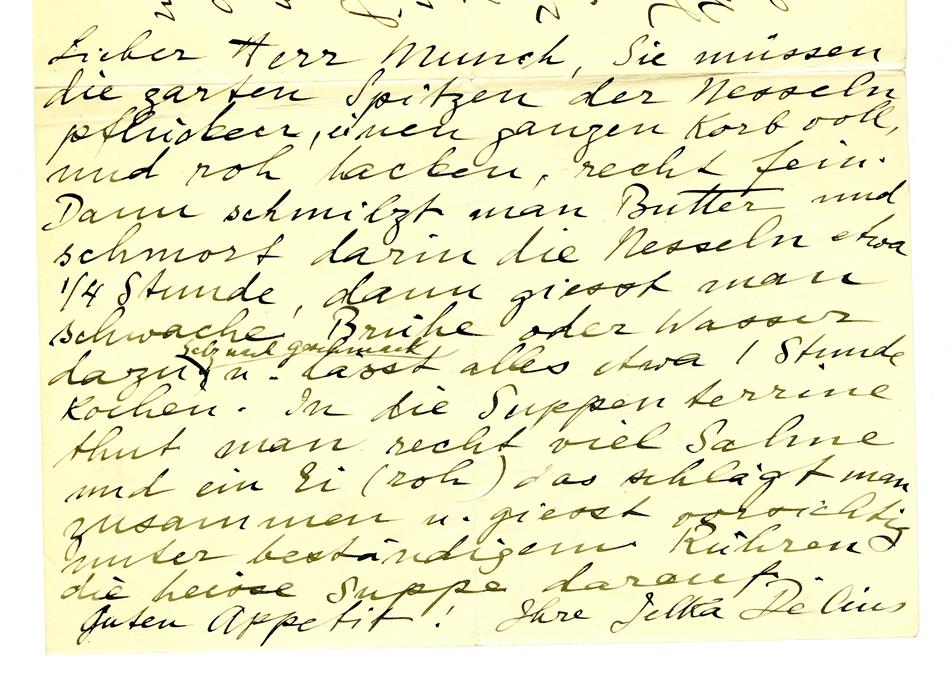 Lieber Herr Munch, Sie müssen
die zarten Spitzen der Nesseln
pflücken, einen ganzen Korb voll,
und roh hacken, recht fein.
Dann schmilzt man Butter und
schmort darin die Nesseln etwa
1/4 Stunde, dann giesst man
schwache Brühe oder Wasser
Salz nach geschmack
dazu u. lässt alles etwa 1 Stunde
kochen. In die Suppenterrine
thut man recht viel Sahne
und ein Ei (roh) das schlägt man
zusammen u. giesst vorsichtig
unter beständigem Rühren
die heisse Suppe darauf.
Guten Appetit! Ihre Jelka Delius